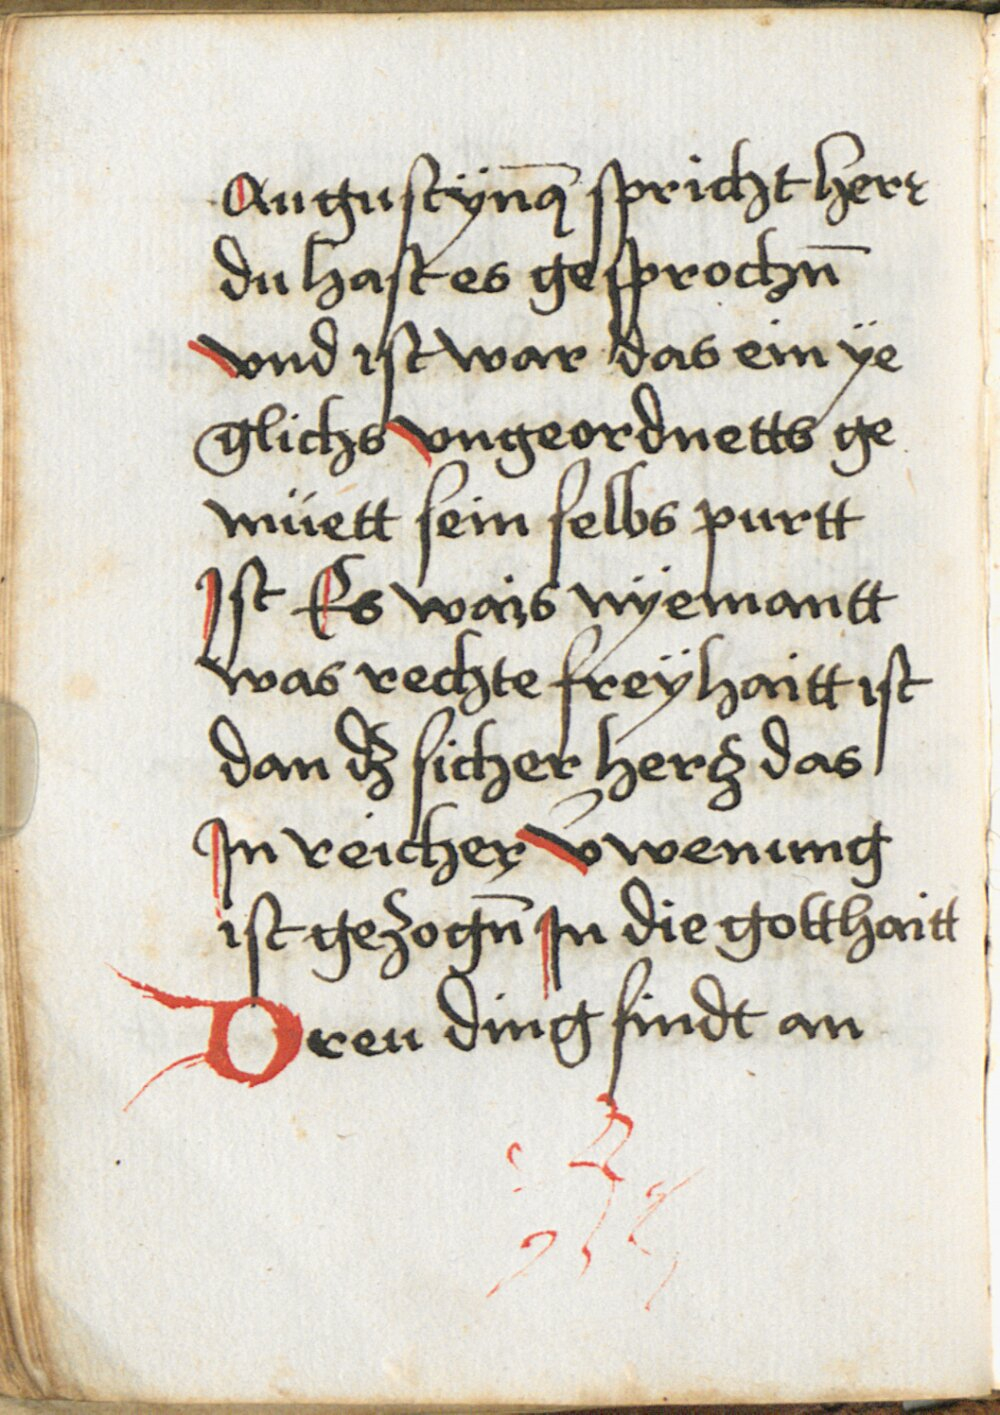 Augustÿnꝯ spricht herr
du hast es gesprochn̄
vnd ist war das ein ÿe
glichs vngeordnetts ge
müett sein selbs purtt
Ist Es wais nÿemantt
was rechte freÿhaitt ist
dan dz sicher hertz das
In reicher v̄wenung
ist gezogn̄ In die gotthaitt
Dreu ding findt an